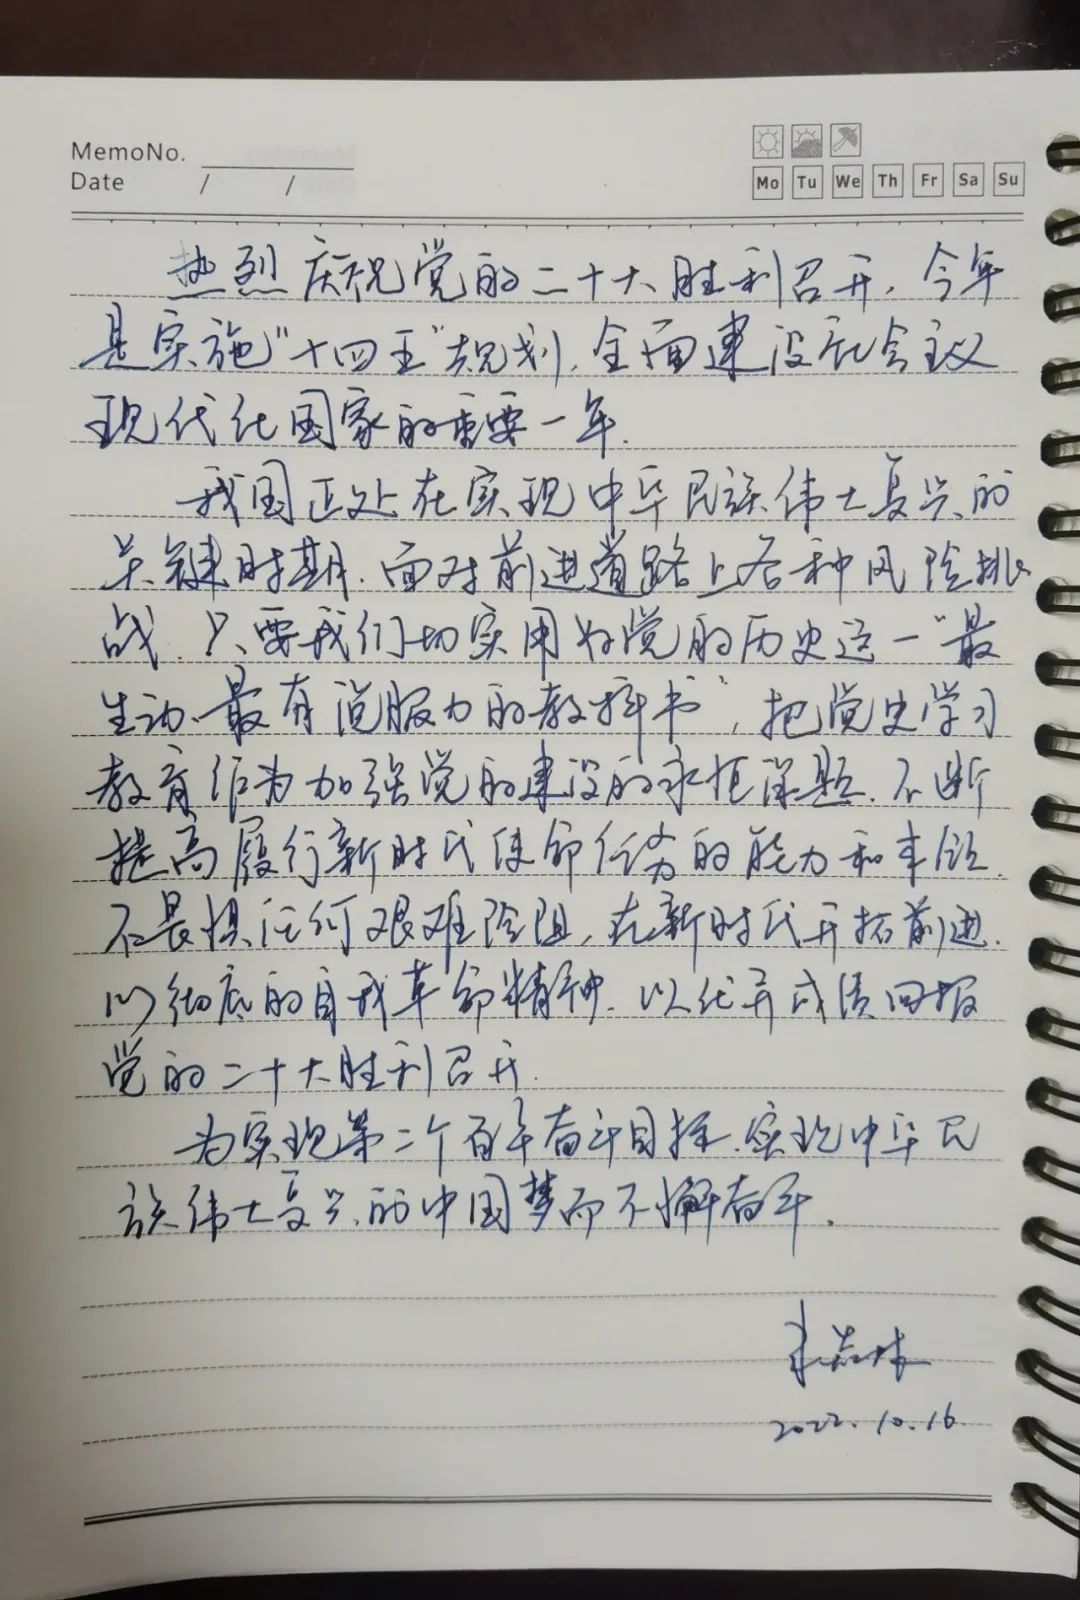 MemoNo.
Date / /
Mo Tu We Th Fr Sa Su
热烈庆祝党的二十大胜利召开,今年
是实施“十四五”规划,全面建设社会主义
现代化国家的重要一年.
我国正处在实现中华民族伟大复兴的
关键时期.面对前进道路上各种风险挑
战.只要我们切实用好党的历史这一“最
生动、最有说服力的教科书”,把党史学习
教育作为加强党的建设的永恒课题.不断
提高履行新时代使命任务的能力和本领.
不畏惧任何艰难险阻,在新时代开拓前进.
以彻底的自我革命精神.以优异成绩回报
党的二十大胜利召开.
为实现第二个百年奋斗目标.实现中华民
族伟大复兴的中国梦而不懈奋斗.
2022.10.16